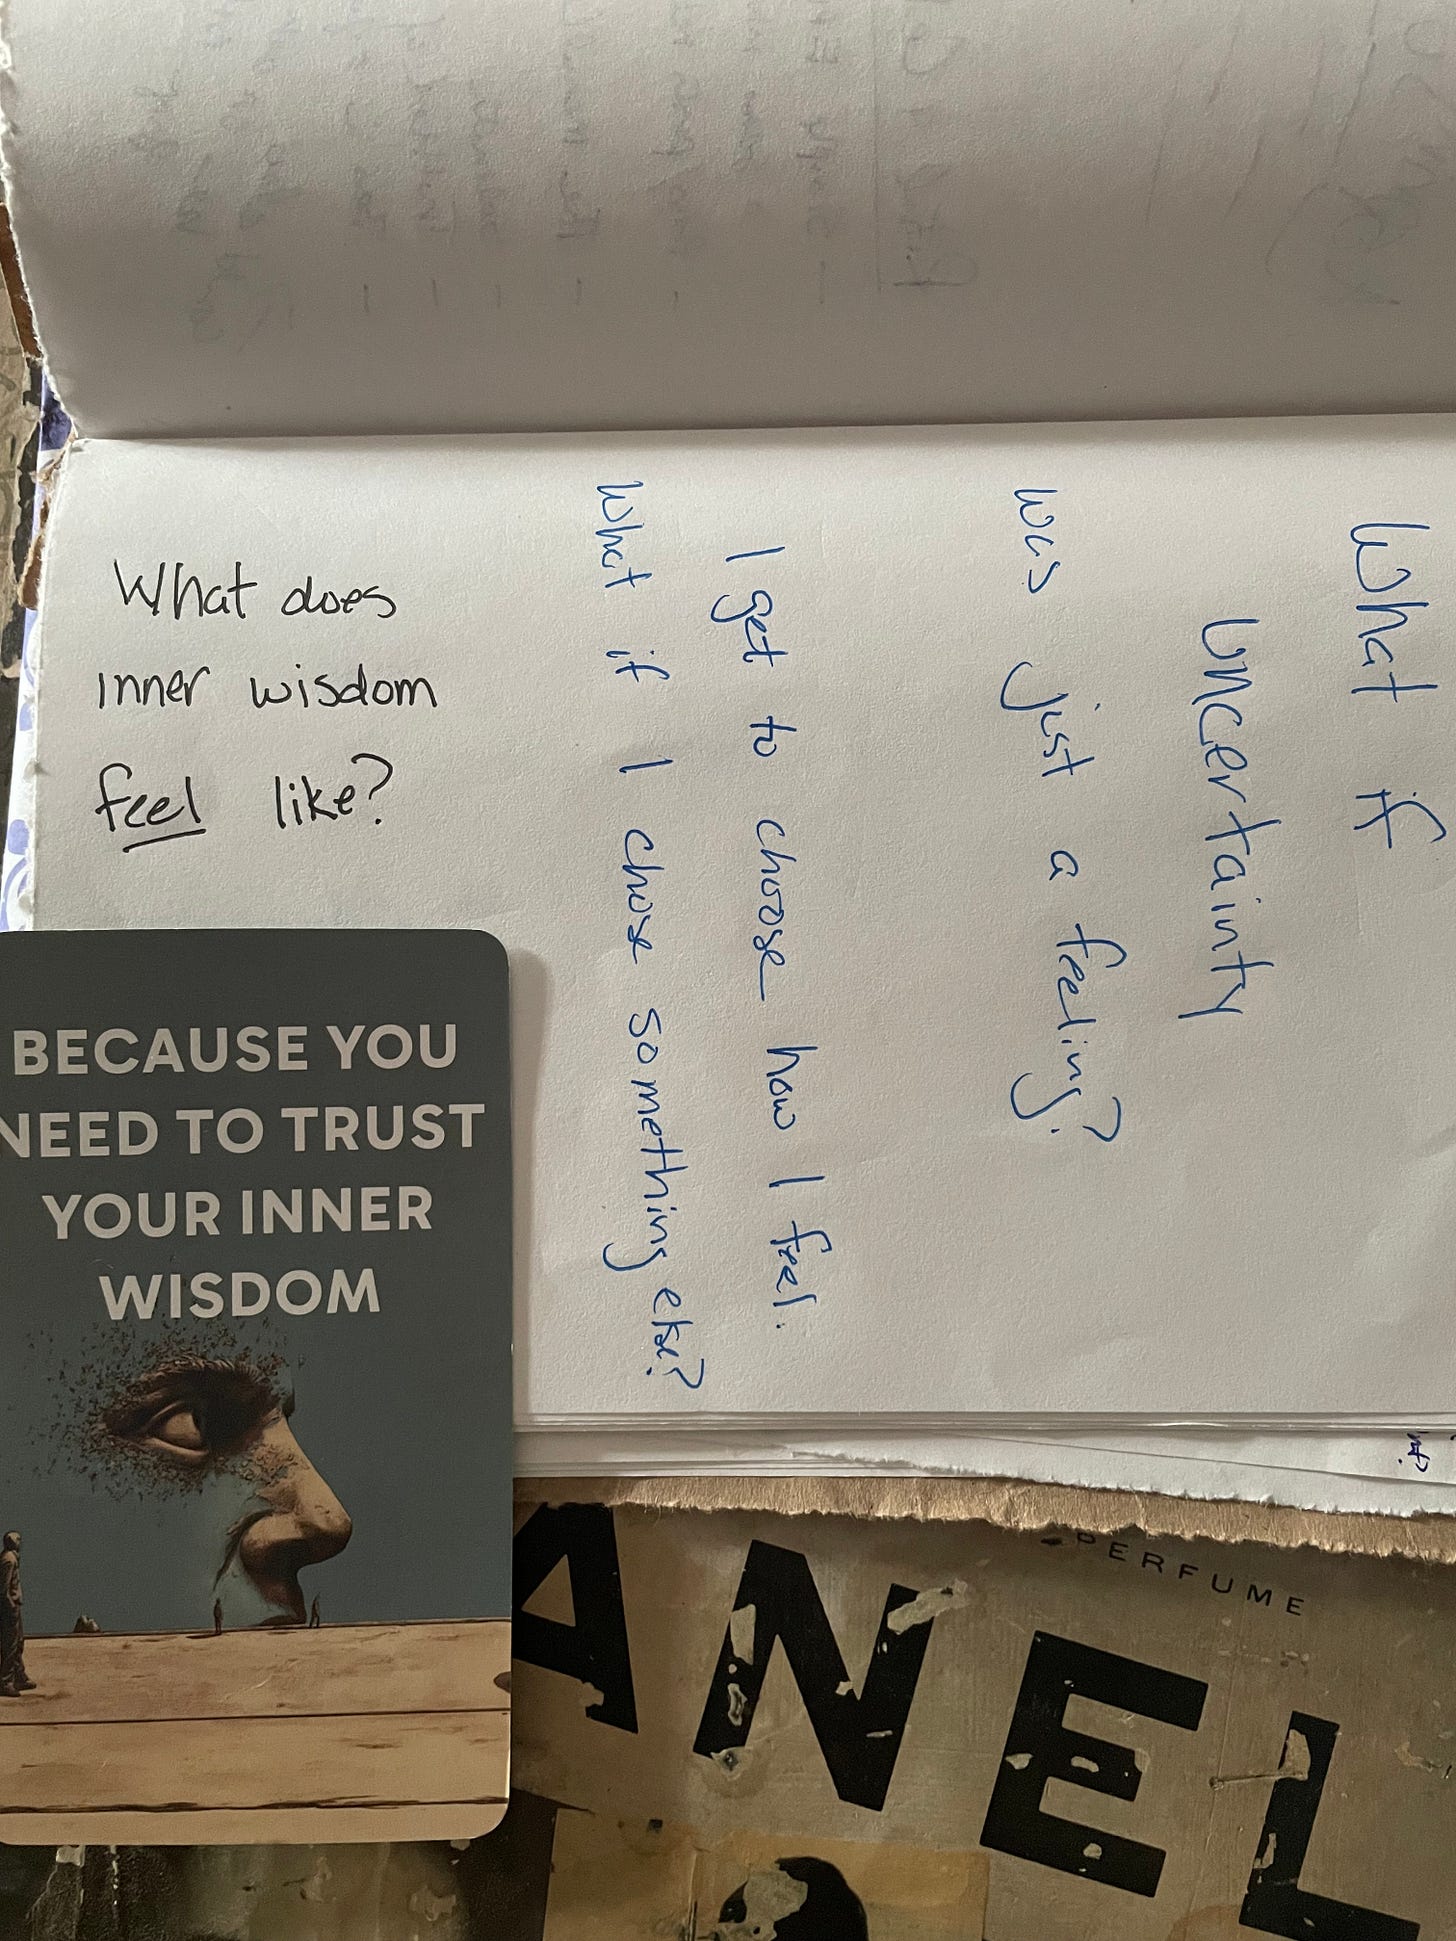 What if
uncertainty
was just a feeling?
I get to choose how I feel.
What if I chose something else?
What does
inner wisdom
feel like?
BECAUSE YOU
NEED TO TRUST
YOUR INNER
WISDOM
PERFUME
ANEL